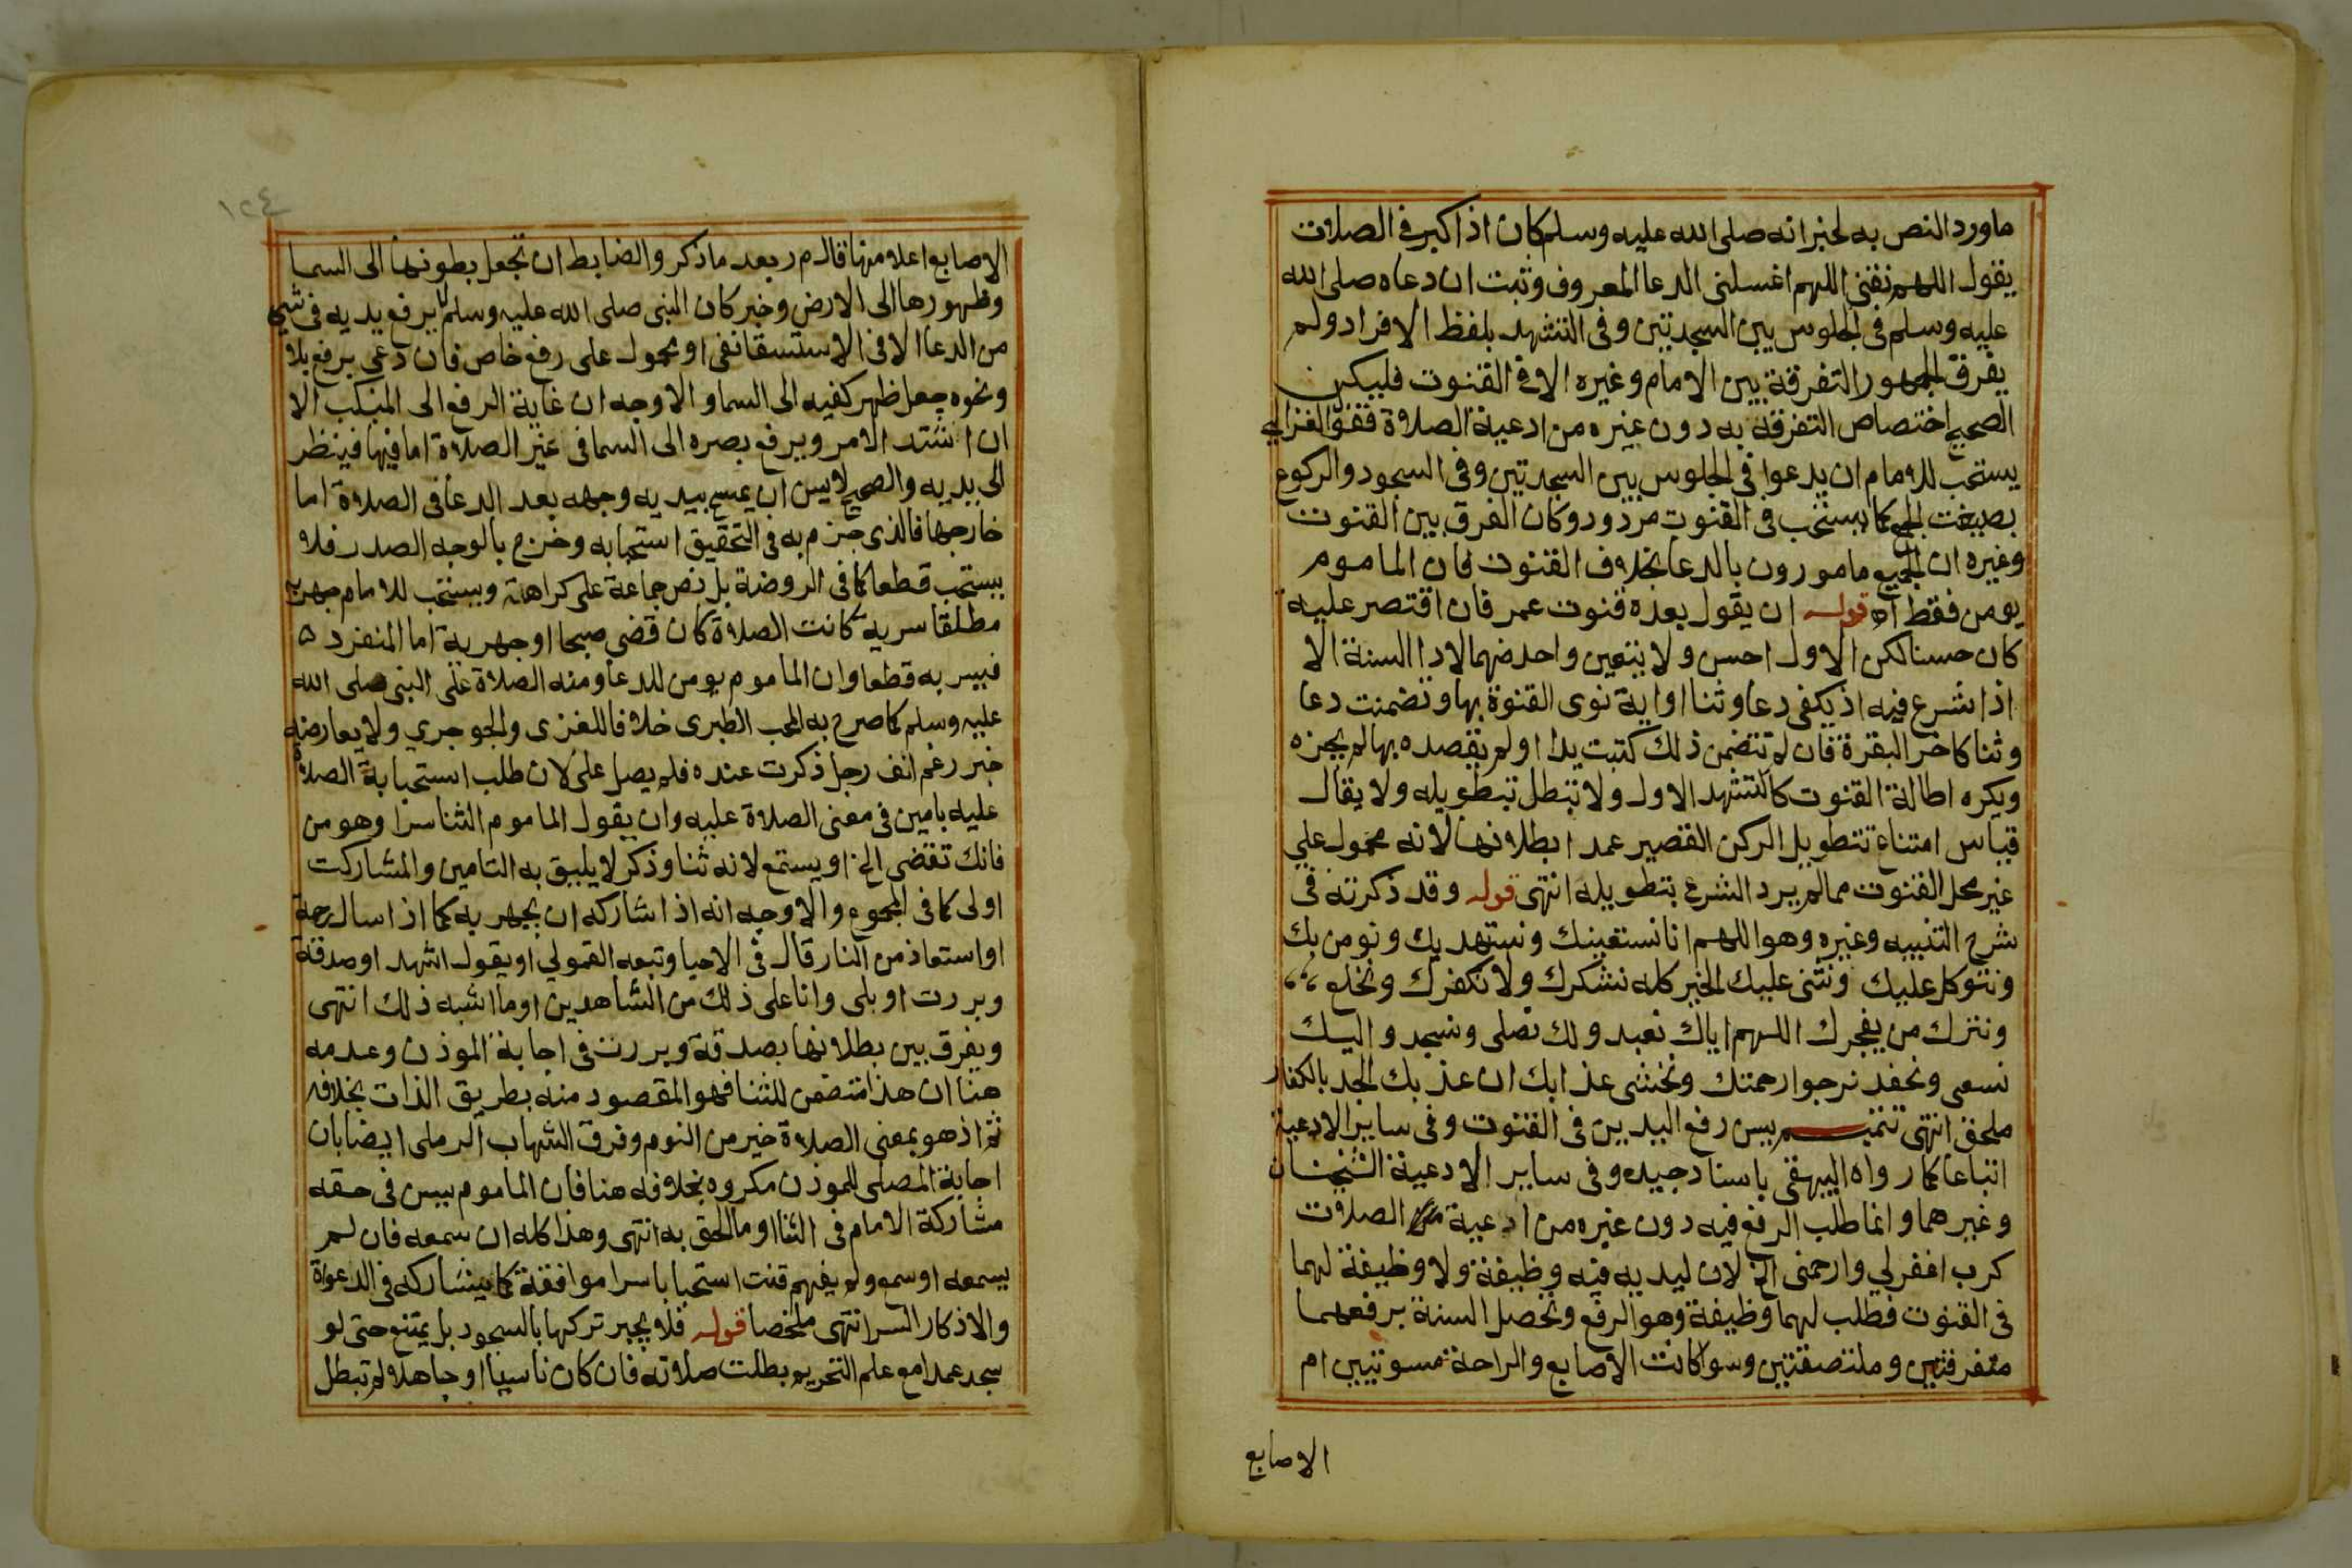 ماورد النص به لخبر انه صلى الله عليه وسلم كان اذا كبر فى الصلات
يقول اللهم نقنى اللهم اغسلنى الدعا المعروف وثبت ان دعاه صلى الله
عليه وسلم فى الجلوس بين السجدتين وفى التشهد بلفظ الافراد ولم
يفرق الجمهور التفرقة بين الامام وغيره الا فى القنوت فليكن
الصحيح اختصاص التفرقة به دون غيره من ادعية الصلاة فقول الغزالي
يستحب للامام ان يدعوا فى الجلوس بين السجدتين وفى السجود والركوع
بصيغت الجمع كما يستحب فى القنوت مردود وكان الفرق بين القنوت
وغيره ان الجميع مامورون بالدعا بخلاف القنوت فان الماموم
يومن فقط اه قوله ان يقول بعده قنوت عمر فان اقتصر عليه
كان حسنا لكن الاول احسن ولا يتعين واحد منهما لادا السنة الا
اذا شرع فيه اذ يكفى دعا وثنا او اية نوى القنوة بها وتضمنت دعا
وثنا كاخر البقرة فان لم تتضمن ذلك كتبت يدا او لم يقصده بها لم يجزه
ويكره اطالة القنوت كالتشهد الاول ولا تبطل بتطويله ولا يقال
قياس امتناع تتطويل الركن القصير عمدا بطلانها لانه محمول على
غير محل القنوت مما لم يرد الشرع بتطويله انتهى قوله وقد ذكرته فى
شرح التنبيه وغيره وهو اللهم انا نستعينك ونستهديك ونومن بك
ونتوكل عليك ونثنى عليك الخير كله نشكرك ولا نكفرك ونخلع
ونترك من يفجرك اللهم اياك نعبد ولك نصلى ونسجد واليك
نسعى ونحفد نرجوا رحمتك ونخشى عذابك ان عذبك الجد بالكفار
ملحق انتهى تتمه يسن رفع اليدين فى القنوت وفى ساير الادعية
اتباعا كما رواه البيهقى باسناد جيد وفى ساير الادعية الشيخان
وغيرهما وانما طلب الرفع فيه دون غيره من ادعية الصلات
كرب اغفرلي وارحمنى الخ لان ليديه فيه وظيفة ولا وظيفة لهما
فى القنوت فطلب لهما وظيفة وهو الرفع وتحصل السنة برفعهما
متفرقتين وملتصقتين وسوا كانت الاصابع والراحة مسوتيين ام
الاصابع
١٢٤
الاصابع اعلا منها قال م ر بعد ما ذكر والضابط ان تجعل بطونها الى السما
وظهورها الى الارض وخبر كان النبى صلى الله عليه وسلم لا يرفع يديه فى شي
من الدعا الا فى الاستسقا نفى او محمول على رفع خاص فان دعى برفع بلا
ونحوه جعل ظهر كفيه الى السما والاوجه ان غاية الرفع الى المنكب الا
ان اشتد الامر ويرفع بصره الى السما فى غير الصلاة اما فيها فينظر
الى يديه والصحيح لا يسن ان يمسح بيديه وجهه بعد الدعا فى الصلاة اما
خارجها فالذى جزم به فى التحقيق استحبابه وخرج بالوجه الصدر فلا
يستحب قطعا كما فى الروضة بل نص جماعة على كراهته ويستحب للامام جهر به
مطلقا سرية كانت الصلاة كان قضى صبحا او جهرية اما المنفرد
فيسر به قطعا وان الماموم يومن للدعا ومنه الصلاة على النبى صلى الله
عليه وسلم كما صرح به المحب الطبرى خلافا للغزى والجوجري ولا يعارضه
خبر رغم انف رجل ذكرت عنده فلم يصل على لان طلب استجابة الصلاة
عليه بامين فى معنى الصلاة عليه وان يقول الماموم الثنا سرا وهو من
فانك تقضى الخ او يستمع لانه ثنا وذكر لا يليق به التامين والمشاركت
اولى كما فى المجموع والاوجه انه اذا شاركه ان يجهر به كما اذا سال رحمة
او استعاذ من النار قال فى الاحيا وتبعه القمولي او يقول اشهد او صدقة
وبررت او بلى وانا على ذلك من الشاهدين او ما اشبه ذلك انتهى
ويفرق بين بطلانها بصدقة وبررت فى اجابة الموذن وعدمه
هنا ان هذا متضمن للثنا فهو المقصود منه بطريق الذات بخلافه
ثم اذ هو بمعنى الصلاة خير من النوم وفرق الشهاب الرملى ايضا بان
اجابة المصلى للموذن مكروه بخلافه هنا فان الماموم يسن فى حقه
مشاركة الامام فى الثنا او ما الحق به انتهى وهذا كله ان سمعه فان لم
يسمعه او سمعه ولم يفهم قنت استحبابا سرا موافقة كما يشاركه فى الدعواة
والاذكار السر انتهى ملخصا قوله فلا يجبر تركها بالسجود بل يمتنع حتى لو
سجد عمدا مع علم التحريم بطلت صلاته فان كان ناسيا او جاهلا لم تبطل